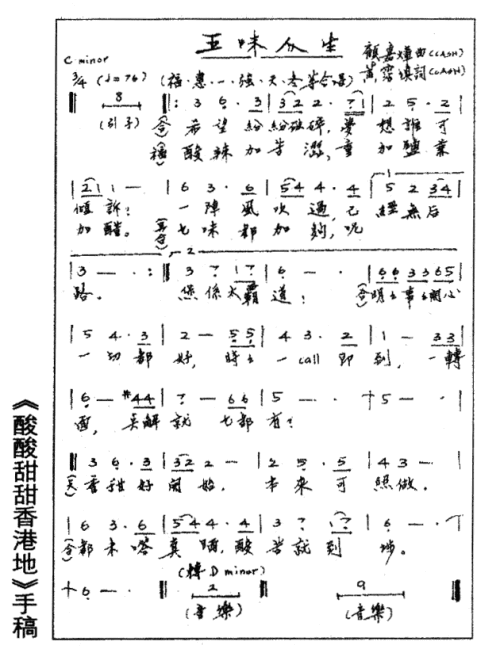 五味人生
C minor
顧嘉煇曲(CASH)
3/4 (♩=76) (福·惠·一·強·天·合唱)
黃霑填詞(CASH)
8 3 6· 3 3 2 2· 7 1 2 5· 2
(引子) (合) 希望紛紛破碎,夢想誰可
(福) 酸辣加苦澀,重加鹽葉
2 1 1 — 6 3· 6 5 4 4· 4 5 2 3 4
傾訴? 一陣風吹過,已經無后
加醋。(合) 七味都加夠,呢
3 — · 3 7 1 7 6 — · 6 6 3 3 6 5
路。 係太霸道! (合)
5 4· 3 2 — 5 5 4 3· 2 1 — 3 3
一切都好,時 一call即到,一轉
6 — #4 4 7 — 6 6 5 — · 5 — ·
面, 就七都有!
3 6· 3 3 2 2 — 2 5· 5 4 3 — ·
香甜好開始。本來可照做。
6 3· 6 5 4 4· 4 3 7 1 7 6 — ·
(合)都未嗒真,酸苦就到埗。
(轉D minor)
6 — · 2 9
(音樂) (音樂)
《酸酸甜甜香港地》手稿